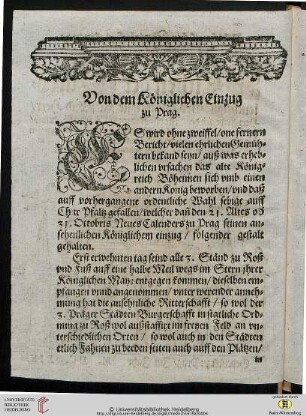 Von dem Königlichen Einzug
zu Prag.
ES wird ohne zweiffel / one fernern
Bericht / vielen ehrlichen Gemüh-
tern bekand seyn / auß was erheb-
lichen vrsachen das alte König-
reich Böheimen sich vmb einen
andern König beworben / vnd daß
auff vorhergangene ordenliche Wahl selbige auff
Chur Pfaltz gefallen / welcher dañ den 21. Altes od
31. Octobris Neues Calenders zu Prag seinen an-
sehenlichen Königlichen einzug / folgender gestalt
gehalten.
Erst erwehnten tag seind alle 3. Ständ zu Roß
vnd Fuß auff eine halbe Meil wegs im Stern jhrer
Königlichen May: entgegen kommen / dieselben em-
pfangen vnd angenommen / vnter weerender anneh-
mung hat die ansehnliche Ritterschafft / so wol der
3. Präger Städten Bürgerschafft in stattliche Ord-
nung zu Roß wol außstaffirt im freyen Feld an vn-
terschiedlichen Orten / so wol auch in den Städten
etlich Fahnen zu beeden seiten auch auff den Plätzen /
in
UNIVERSITÄTS-
BIBLIOTHEK
HEIDELBERG
© Universitätsbibliothek Heidelberg